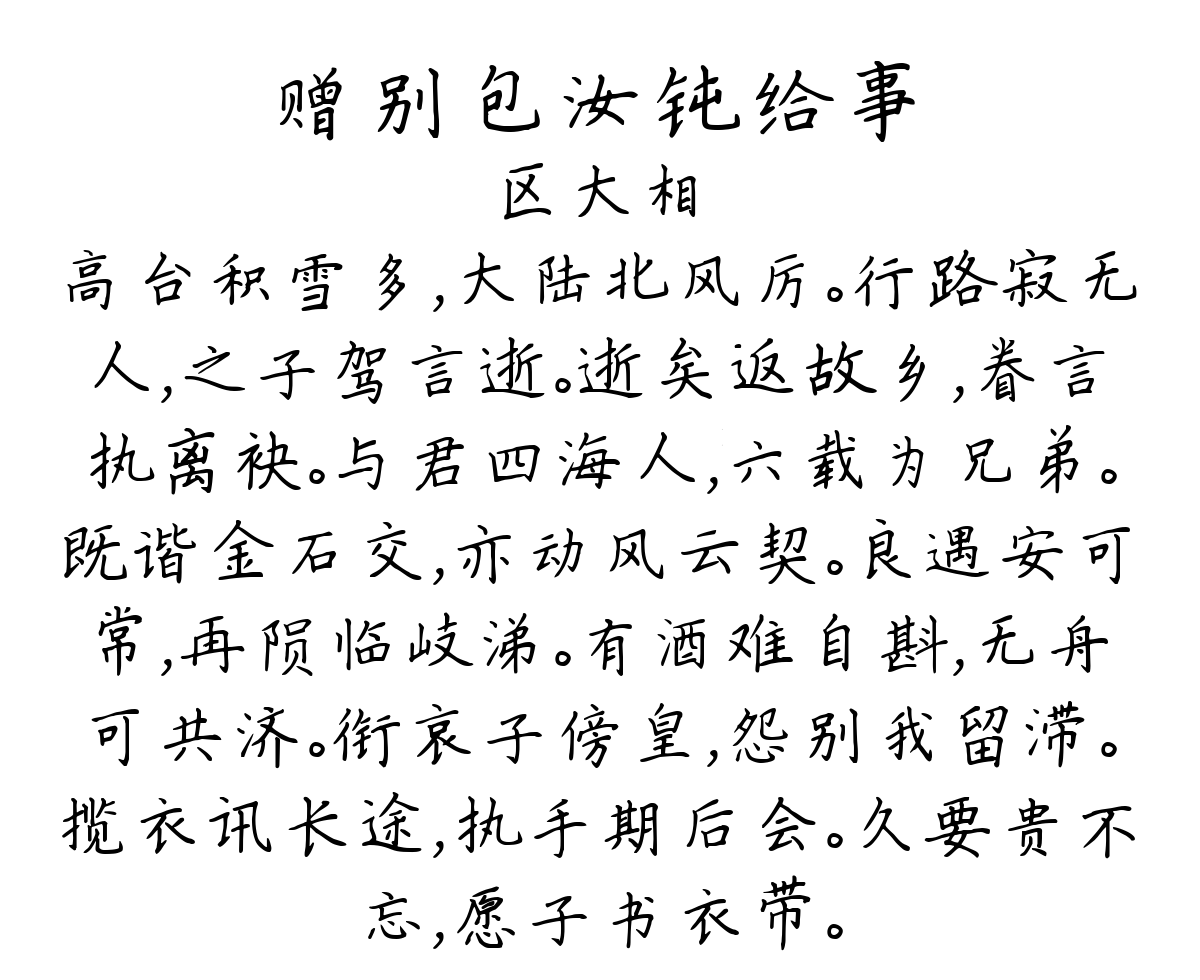 赠别包汝钝给事
区大相
高台积雪多,大陆北风厉。行路寂无
人,之子驾言逝。逝矣返故乡,眷言
执离袂。与君四海人,六载为兄弟。
既谐金石交,亦动风云契。良遇安可
常,再陨临岐涕。有酒难自斟,无舟
可共济。衔哀子傍皇,怨别我留滞。
揽衣讯长途,执手期后会。久要贵不
忘,愿子书衣带。